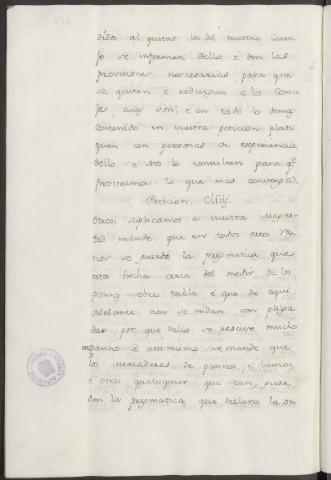 dido al quitar los del nuestro Conse
jo se informen dello, é den las
provisiones necesarias, para que
se quiten é reduzcan a los Conce
jos, é en todo lo demas
contenido en vuestra peticion plati
quen con personas de experiencia
dello, é nos lo consulten para q.e
proveamos lo que mas convenga.
Peticion. Cliiij.
Otrosi suplicamos a vuestra Mages-
tad mande que en todos estos rey-
nos se guarde la prematica que
esta hecha cerca del medir de los
paños sobre tabla, é que de aqui
adelante non se midan con pulga
das por que dello se rescive mucho
danno: é asimismo se mande que
los mercaderes de pannos, é lanas,
é otros qualesquier que sean, guar
den la prematica que declara la or